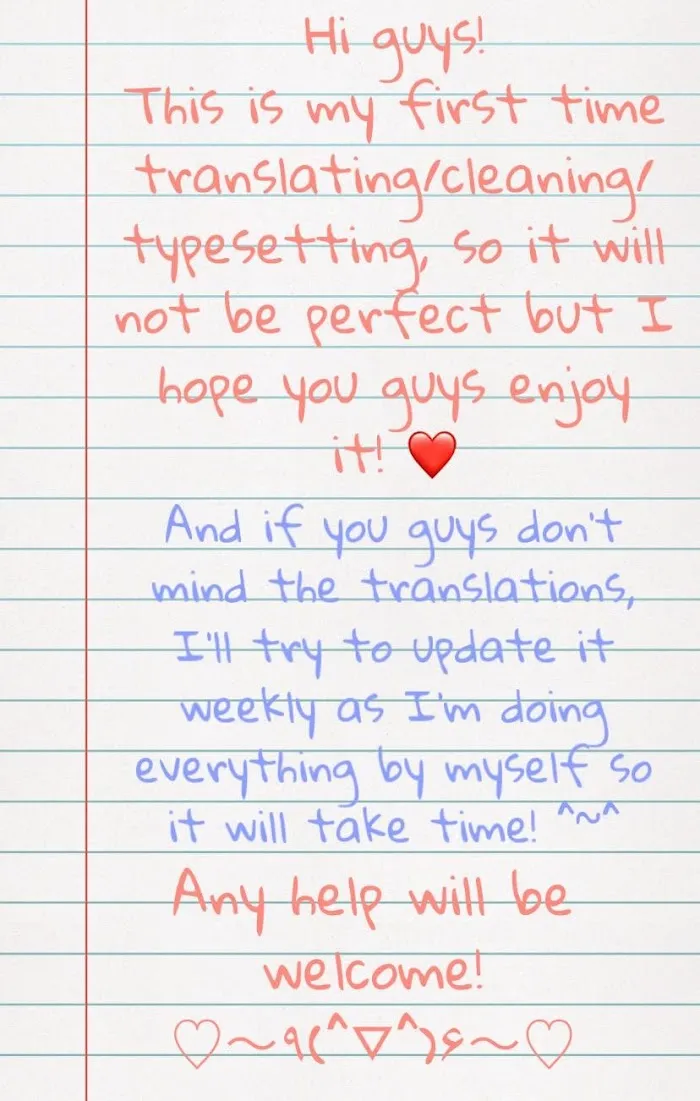 Hi guys!
This is my first time
translating/cleaning/
typesetting, so it will
not be perfect but I
hope you guys enjoy
it! ❤️
And if you guys don't
mind the translations,
I'll try to update it
weekly as I'm doing
everything by myself so
it will take time! ^~^
Any help will be
welcome!
♡～٩(^▽^)۶～♡